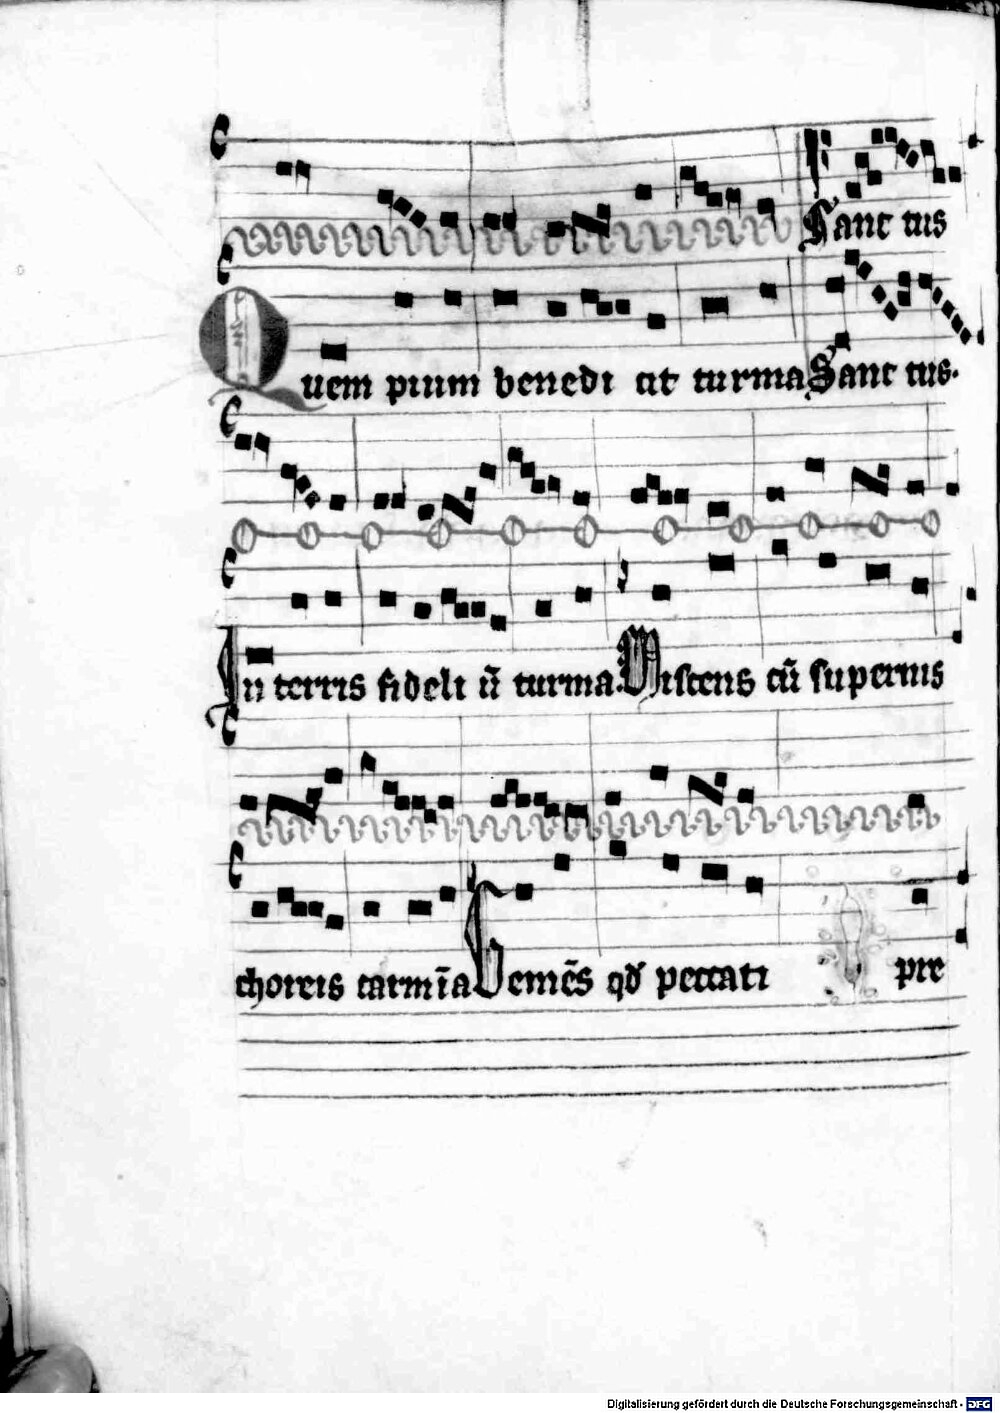 Sanc tus
Quem pium benedi cit turma Sanc tus.
In terris fideli ū turma. Miscens cū supernis
choreis carmīa Demēs qd peccati pre
Digitalisierung gefördert durch die Deutsche Forschungsgemeinschaft - DFG